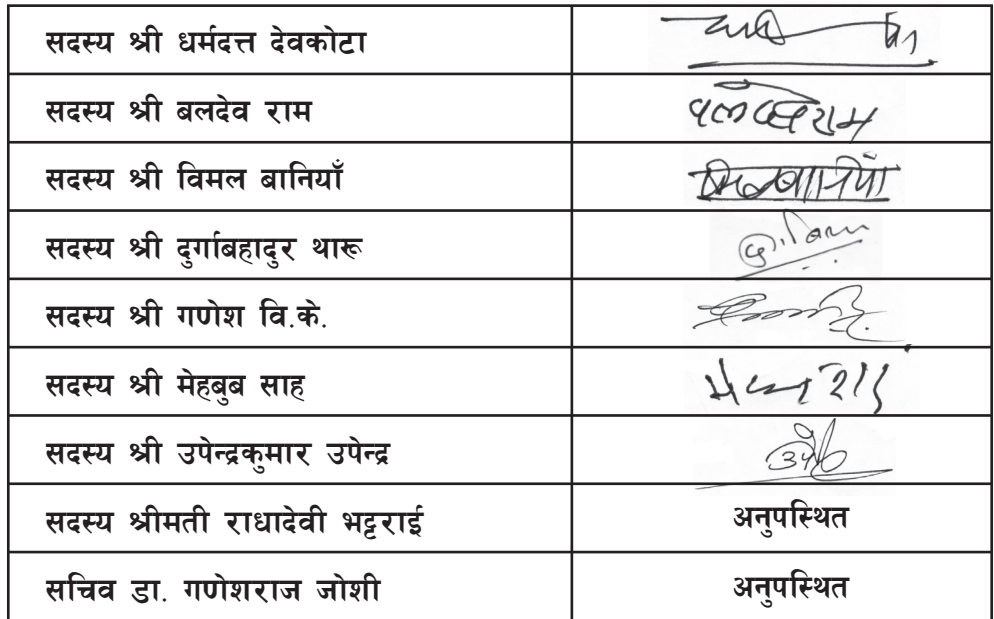 सदस्य श्री धर्मदत्त देवकोटा
सदस्य श्री बलदेव राम
सदस्य श्री विमल बानियाँ
सदस्य श्री दुर्गाबहादुर थारू
सदस्य श्री गणेश वि.के.
सदस्य श्री मेहबुब साह
सदस्य श्री उपेन्द्रकुमार उपेन्द्र
सदस्य श्रीमती राधादेवी भट्टराई अनुपस्थित
सचिव डा. गणेशराज जोशी अनुपस्थित